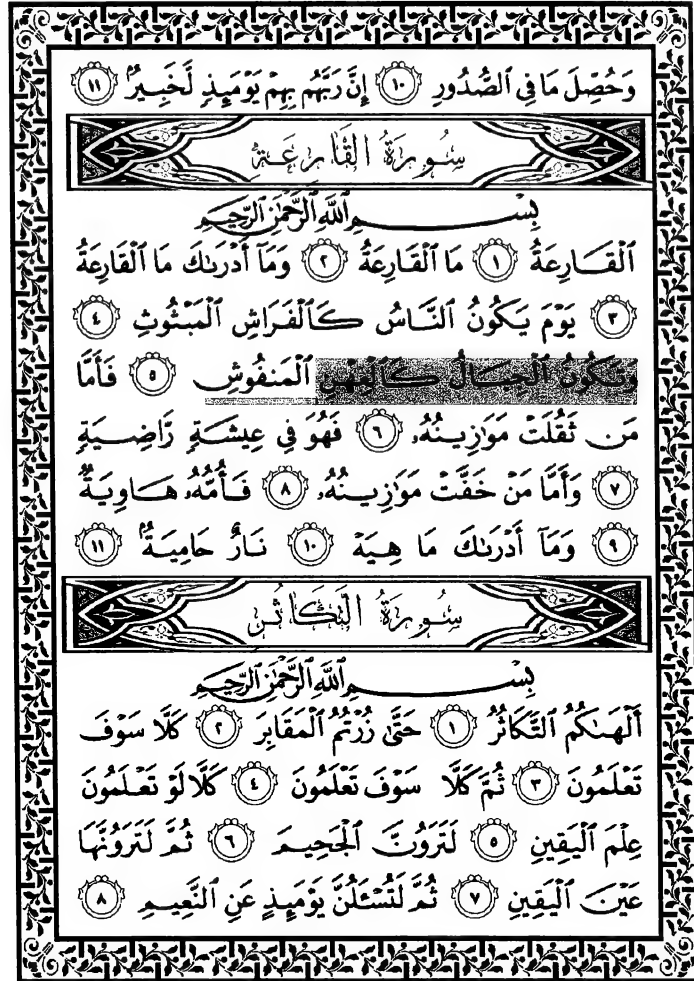 وَحُصِّلَ مَا فِى ٱلصُّدُورِ ١٠ إِنَّ رَبَّهُم بِهِمْ يَوْمَئِذٍ لَّخَبِيرٌۢ ١١
سُورَةُ القَارِعَةِ
بِسْمِ ٱللَّهِ ٱلرَّحْمَٰنِ ٱلرَّحِيمِ
ٱلْقَارِعَةُ ١ مَا ٱلْقَارِعَةُ ٢ وَمَآ أَدْرَىٰكَ مَا ٱلْقَارِعَةُ
٣ يَوْمَ يَكُونُ ٱلنَّاسُ كَٱلْفَرَاشِ ٱلْمَبْثُوثِ ٤
وَتَكُونُ ٱلْجِبَالُ كَٱلْعِهْنِ ٱلْمَنفُوشِ ٥ فَأَمَّا
مَن ثَقُلَتْ مَوَٰزِينُهُۥ ٦ فَهُوَ فِى عِيشَةٍ رَّاضِيَةٍ
٧ وَأَمَّا مَنْ خَفَّتْ مَوَٰزِينُهُۥ ٨ فَأُمُّهُۥ هَاوِيَةٌ
٩ وَمَآ أَدْرَىٰكَ مَا هِيَهْ ١٠ نَارٌ حَامِيَةٌۢ ١١
سُورَةُ التَّكَاثُرِ
بِسْمِ ٱللَّهِ ٱلرَّحْمَٰنِ ٱلرَّحِيمِ
أَلْهَىٰكُمُ ٱلتَّكَاثُرُ ١ حَتَّىٰ زُرْتُمُ ٱلْمَقَابِرَ ٢ كَلَّا سَوْفَ
تَعْلَمُونَ ٣ ثُمَّ كَلَّا سَوْفَ تَعْلَمُونَ ٤ كَلَّا لَوْ تَعْلَمُونَ
عِلْمَ ٱلْيَقِينِ ٥ لَتَرَوُنَّ ٱلْجَحِيمَ ٦ ثُمَّ لَتَرَوُنَّهَا
عَيْنَ ٱلْيَقِينِ ٧ ثُمَّ لَتُسْـَٔلُنَّ يَوْمَئِذٍ عَنِ ٱلنَّعِيمِ ٨